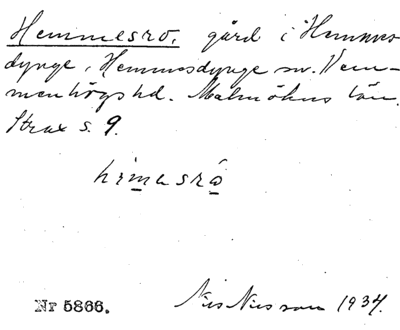 Hemmesro. gård i Hemmes-
dynge, Hemmesdynge sn. Vem-
menhögs hd. Malmöhus län.
Strax s. 9.
himasrå
Nr 5866. Nils Nilsson 1934.